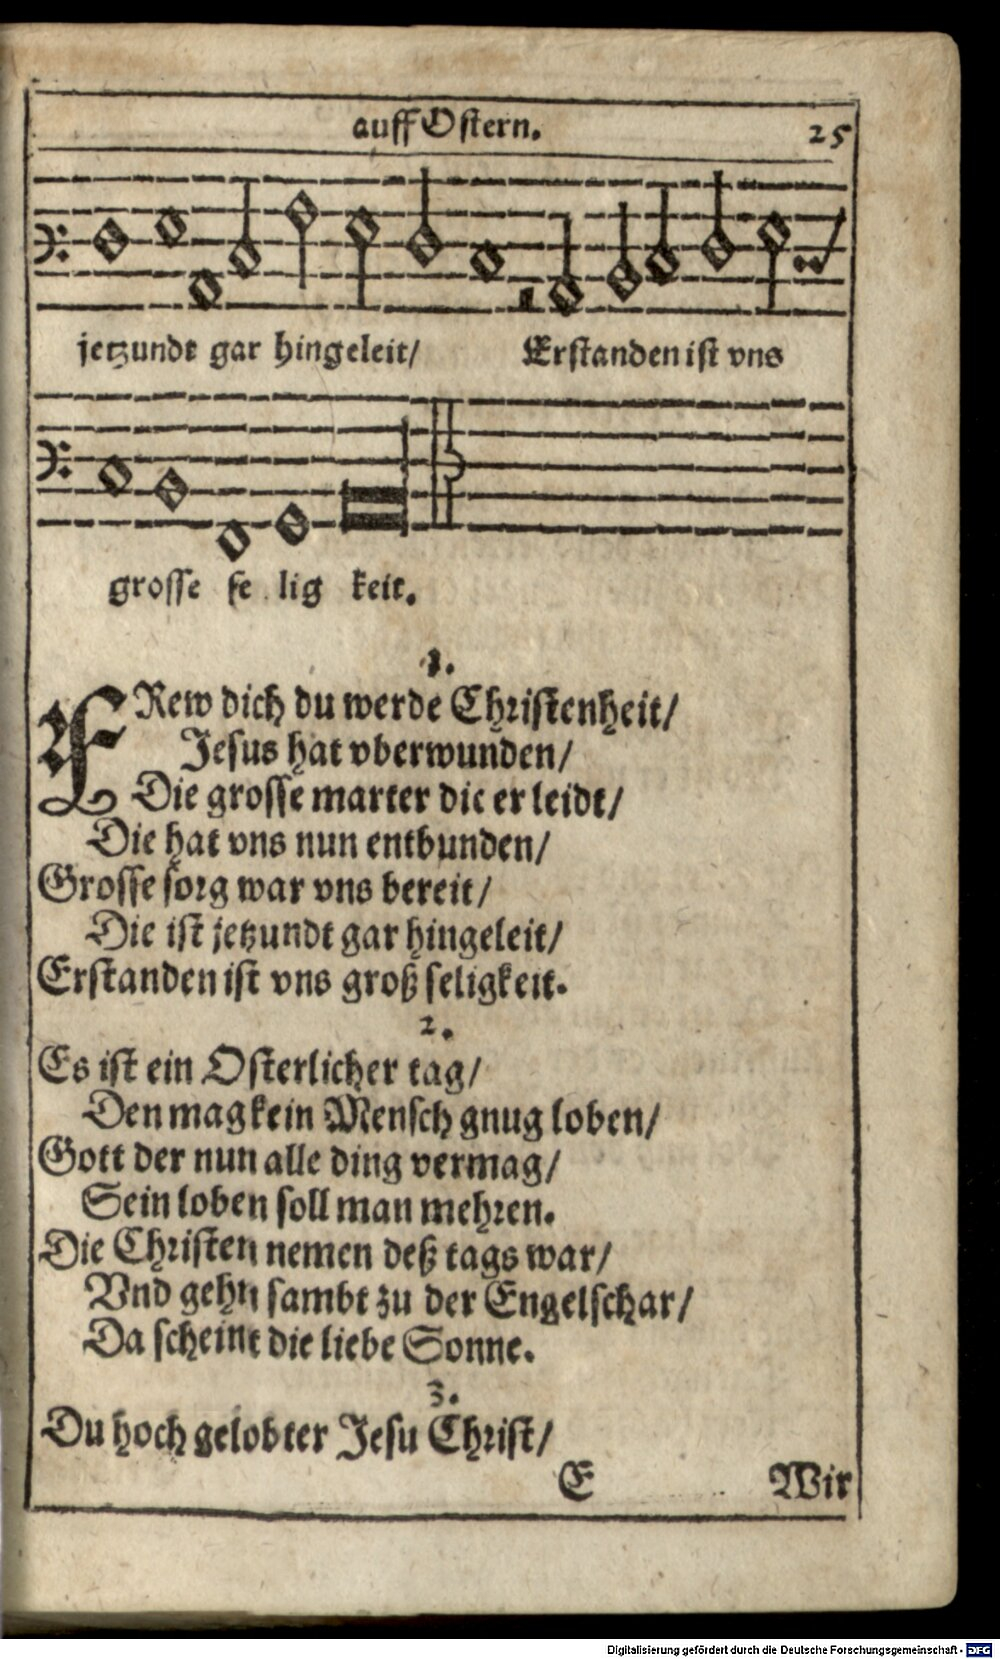 auff Ostern. 25
jetzundt gar hingeleit/ Erstanden ist vns
grosse se lig keit.
1.
FRew dich du werde Christenheit/
Jesus hat vberwunden/
Die grosse marter die er leidt/
Die hat vns nun entbunden/
Grosse sorg war vns bereit/
Die ist jetzundt gar hingeleit/
Erstanden ist vns groß seligkeit.
2.
Es ist ein Osterlicher tag/
Den mag kein Mensch gnug loben/
Gott der nun alle ding vermag/
Sein loben soll man mehren.
Die Christen nemen deß tags war/
Vnd gehn sambt zu der Engelschar/
Da scheint die liebe Sonne.
3.
Du hoch gelobter Jesu Christ/
E Wir
Digitalisierung gefördert durch die Deutsche Forschungsgemeinschaft - DFG